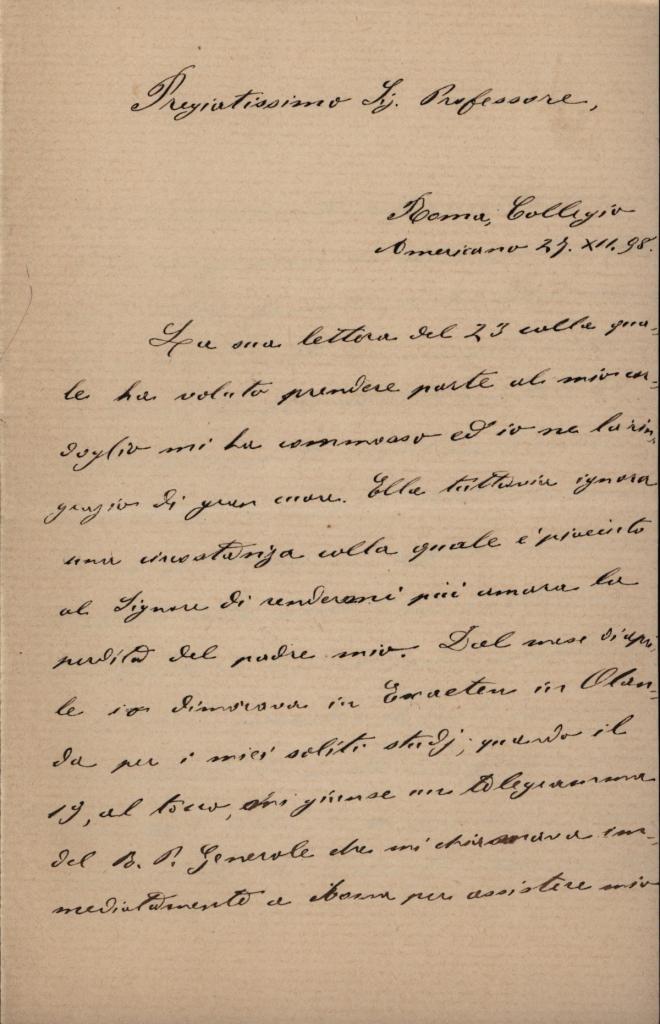 Pregiatissimo Sig. Professore,
Roma, Collegio
Americano 27. XII. 98.
La sua lettera del 23 colla qua-
le ha voluto prendere parte al mio cor-
doglio mi ha commosso ed io ne la rin-
grazio di gran cuore. Ella tuttavia ignora
una circostanza colla quale è piaciuto
al Signore di rendermi più amara la
perdita del padre mio. Dal mese di apri-
le io dimorava in Exaeten in Olan-
da per i miei soliti studj; quando il
19, al tocco, mi giunse un telegramma
del R. P. Generale che mi chiamava im-
mediatamente a Roma per assistere mio